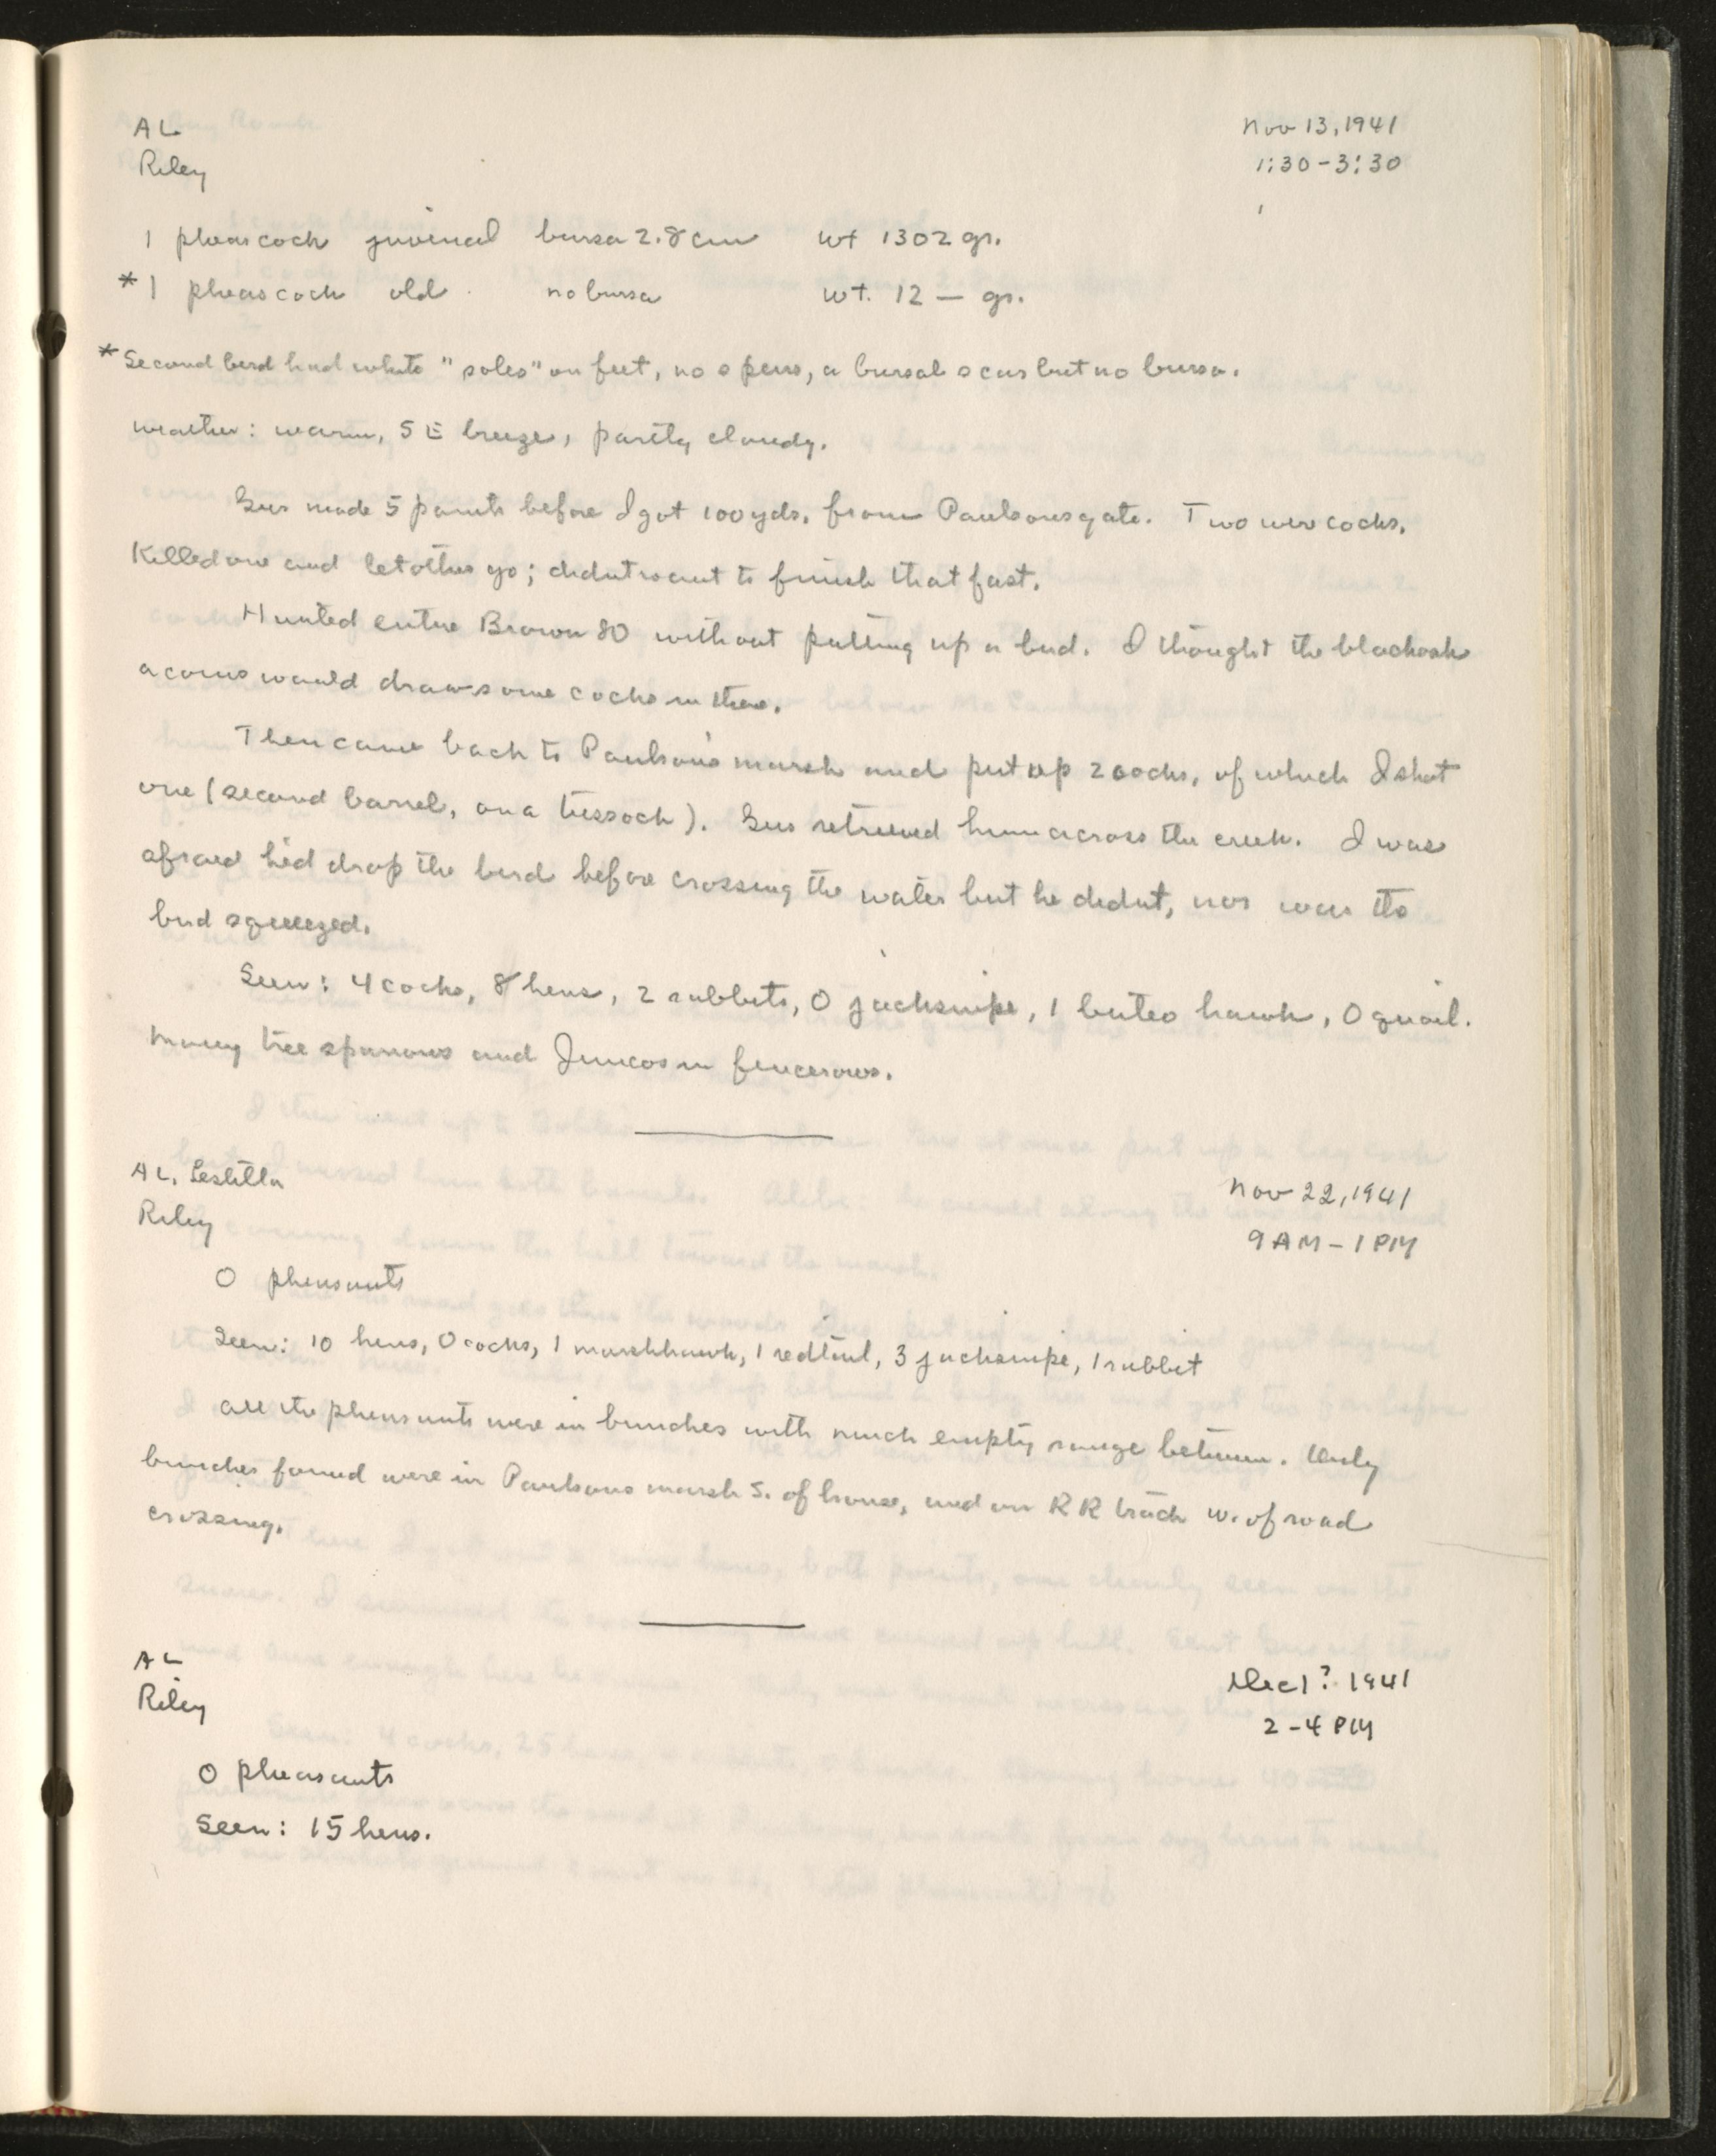 AL
Riley
Nov 13, 1941
1:30-3:30
1 pheas cock juvenal bursa 2.8 cm wt 1302 gr.
*1 pheas cock old no bursa wt. 12 — gr.
*Second bird had white "soles" on feet, no spurs, a bursal scar but no bursa.
Weather: warm, SE breeze, partly cloudy.
Gus made 5 points before I got 100 yds. from Paulsons gate. Two were cocks.
Killed one and let other go; didnt want to finish that fast.
Hunted entire Brown 80 without putting up a bird. I thought the black oak
acorns would draw some cocks in there.
Then came back to Paulson's marsh and put up 2 cocks, of which I shot
one (second barrel, on a tussock). Gus retrieved him across the creek. I was
afraid he'd drop the bird before crossing the water but he didnt, nor was the
bird squeezed.
Seen: 4 cocks, 8 hens, 2 rabbits, 0 jacksnipe, 1 buteo hawk, 0 quail.
Many tree sparrows and Juncos in fencerows.
AL, Estella
Riley
Nov 22, 1941
9 AM - 1 PM
0 pheasants
Seen: 10 hens, 0 cocks, 1 marshhawk, 1 redtail, 3 jacksnipe, 1 rabbit
All the pheasants were in bunches with much empty range between. Only
bunches found were in Paulsons marsh S. of house, and on RR track w. of road
crossing.
AL
Riley
Dec 1? 1941
2-4 PM
0 pheasants
Seen: 15 hens.